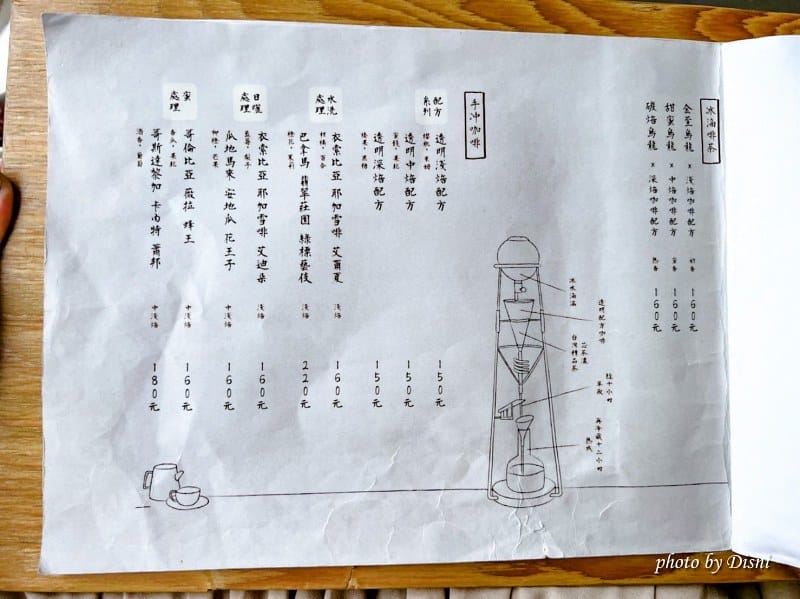 冰滴啡茶
金萱烏龍 x 淺焙咖啡配方 奶香 160元
甜蜜烏龍 x 中焙咖啡配方 蜜香 160元
碳焙烏龍 x 深焙咖啡配方 熟香 160元
透明配方咖啡
台灣精品茶
經十小時
萃取
再冷藏十二小時
熟成
手冲咖啡
配方
系列
透明淺焙配方 150元
透明中焙配方 150元
透明深焙配方 150元
榛果,黑糖
水洗
處理
衣索比亞 耶加雪啡 艾爾夏 淺焙 160元
柑橘,百合
巴拿馬 翡翠莊園 綠標藝伎 淺焙 220元
橙花,茉莉
日曬
處理
衣索比亞 耶加雪啡 艾迪朵 淺焙 160元
藍莓,梨子
瓜地馬來 安地瓜 花王子 中淺焙 160元
柳橙,芒果
蜜
處理
哥倫比亞 薇拉 蜂王 中淺焙 160元
哥斯達黎加 卡內特 蕭邦 中淺焙 180元
酒香,葡萄
photo by Disni